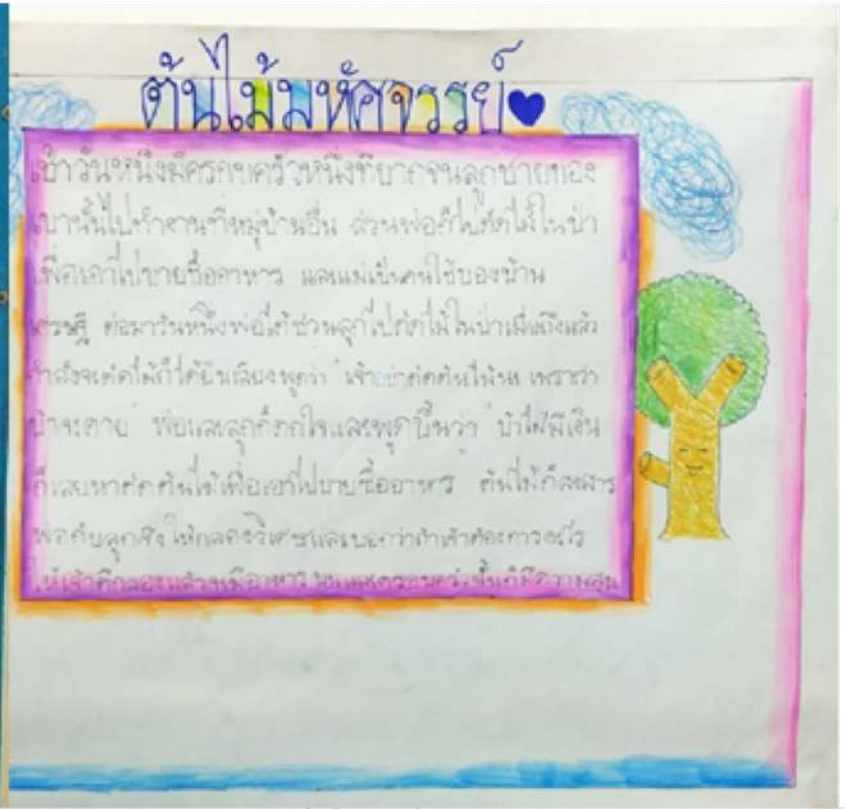 ต้นไม้มหัศจรรย์
เช้าวันหนึ่งมีครอบครัวหนึ่งที่ยากจนลูกชายของ
เขานั้นไปทำงานที่หมู่บ้านอื่น ส่วนพ่อก็ไปตัดไม้ในป่า
เพื่อเอาไปขายซื้ออาหาร และแม่เป็นคนใช้ของบ้าน
เศรษฐี ต่อมาวันหนึ่งพ่อได้ชวนลูกไปตัดไม้ในป่าเมื่อถึงแล้ว
กำลังจะตัดไม้ก็ได้ยินเสียงพูดว่า "เจ้าอย่าตัดต้นไม้นะ เพราะว่า
ข้าจะตาย" พ่อและลูกก็ตกใจและพูดขึ้นว่า "ข้าไม่มีเงิน
ก็เลยหาตัดต้นไม้เพื่อเอาไปขายซื้ออาหาร" ต้นไม้ก็สงสาร
พ่อกับลูกจึงให้กลองวิเศษและบอกว่าถ้าเจ้าต้องการอะไร
ให้เจ้าตีกลองแล้วจะมีอาหาร และครอบครัวนั้นก็มีความสุข